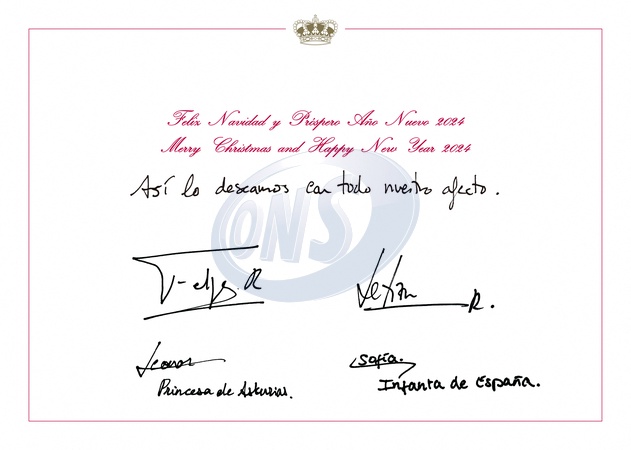 Feliz Navidad y Próspero Año Nuevo 2024
Merry Christmas and Happy New Year 2024
Así lo deseamos con todo nuestro afecto.
ONS
Felipe R
Letizia R.
Leonor
Princesa de Asturias.
Sofía.
Infanta de España.